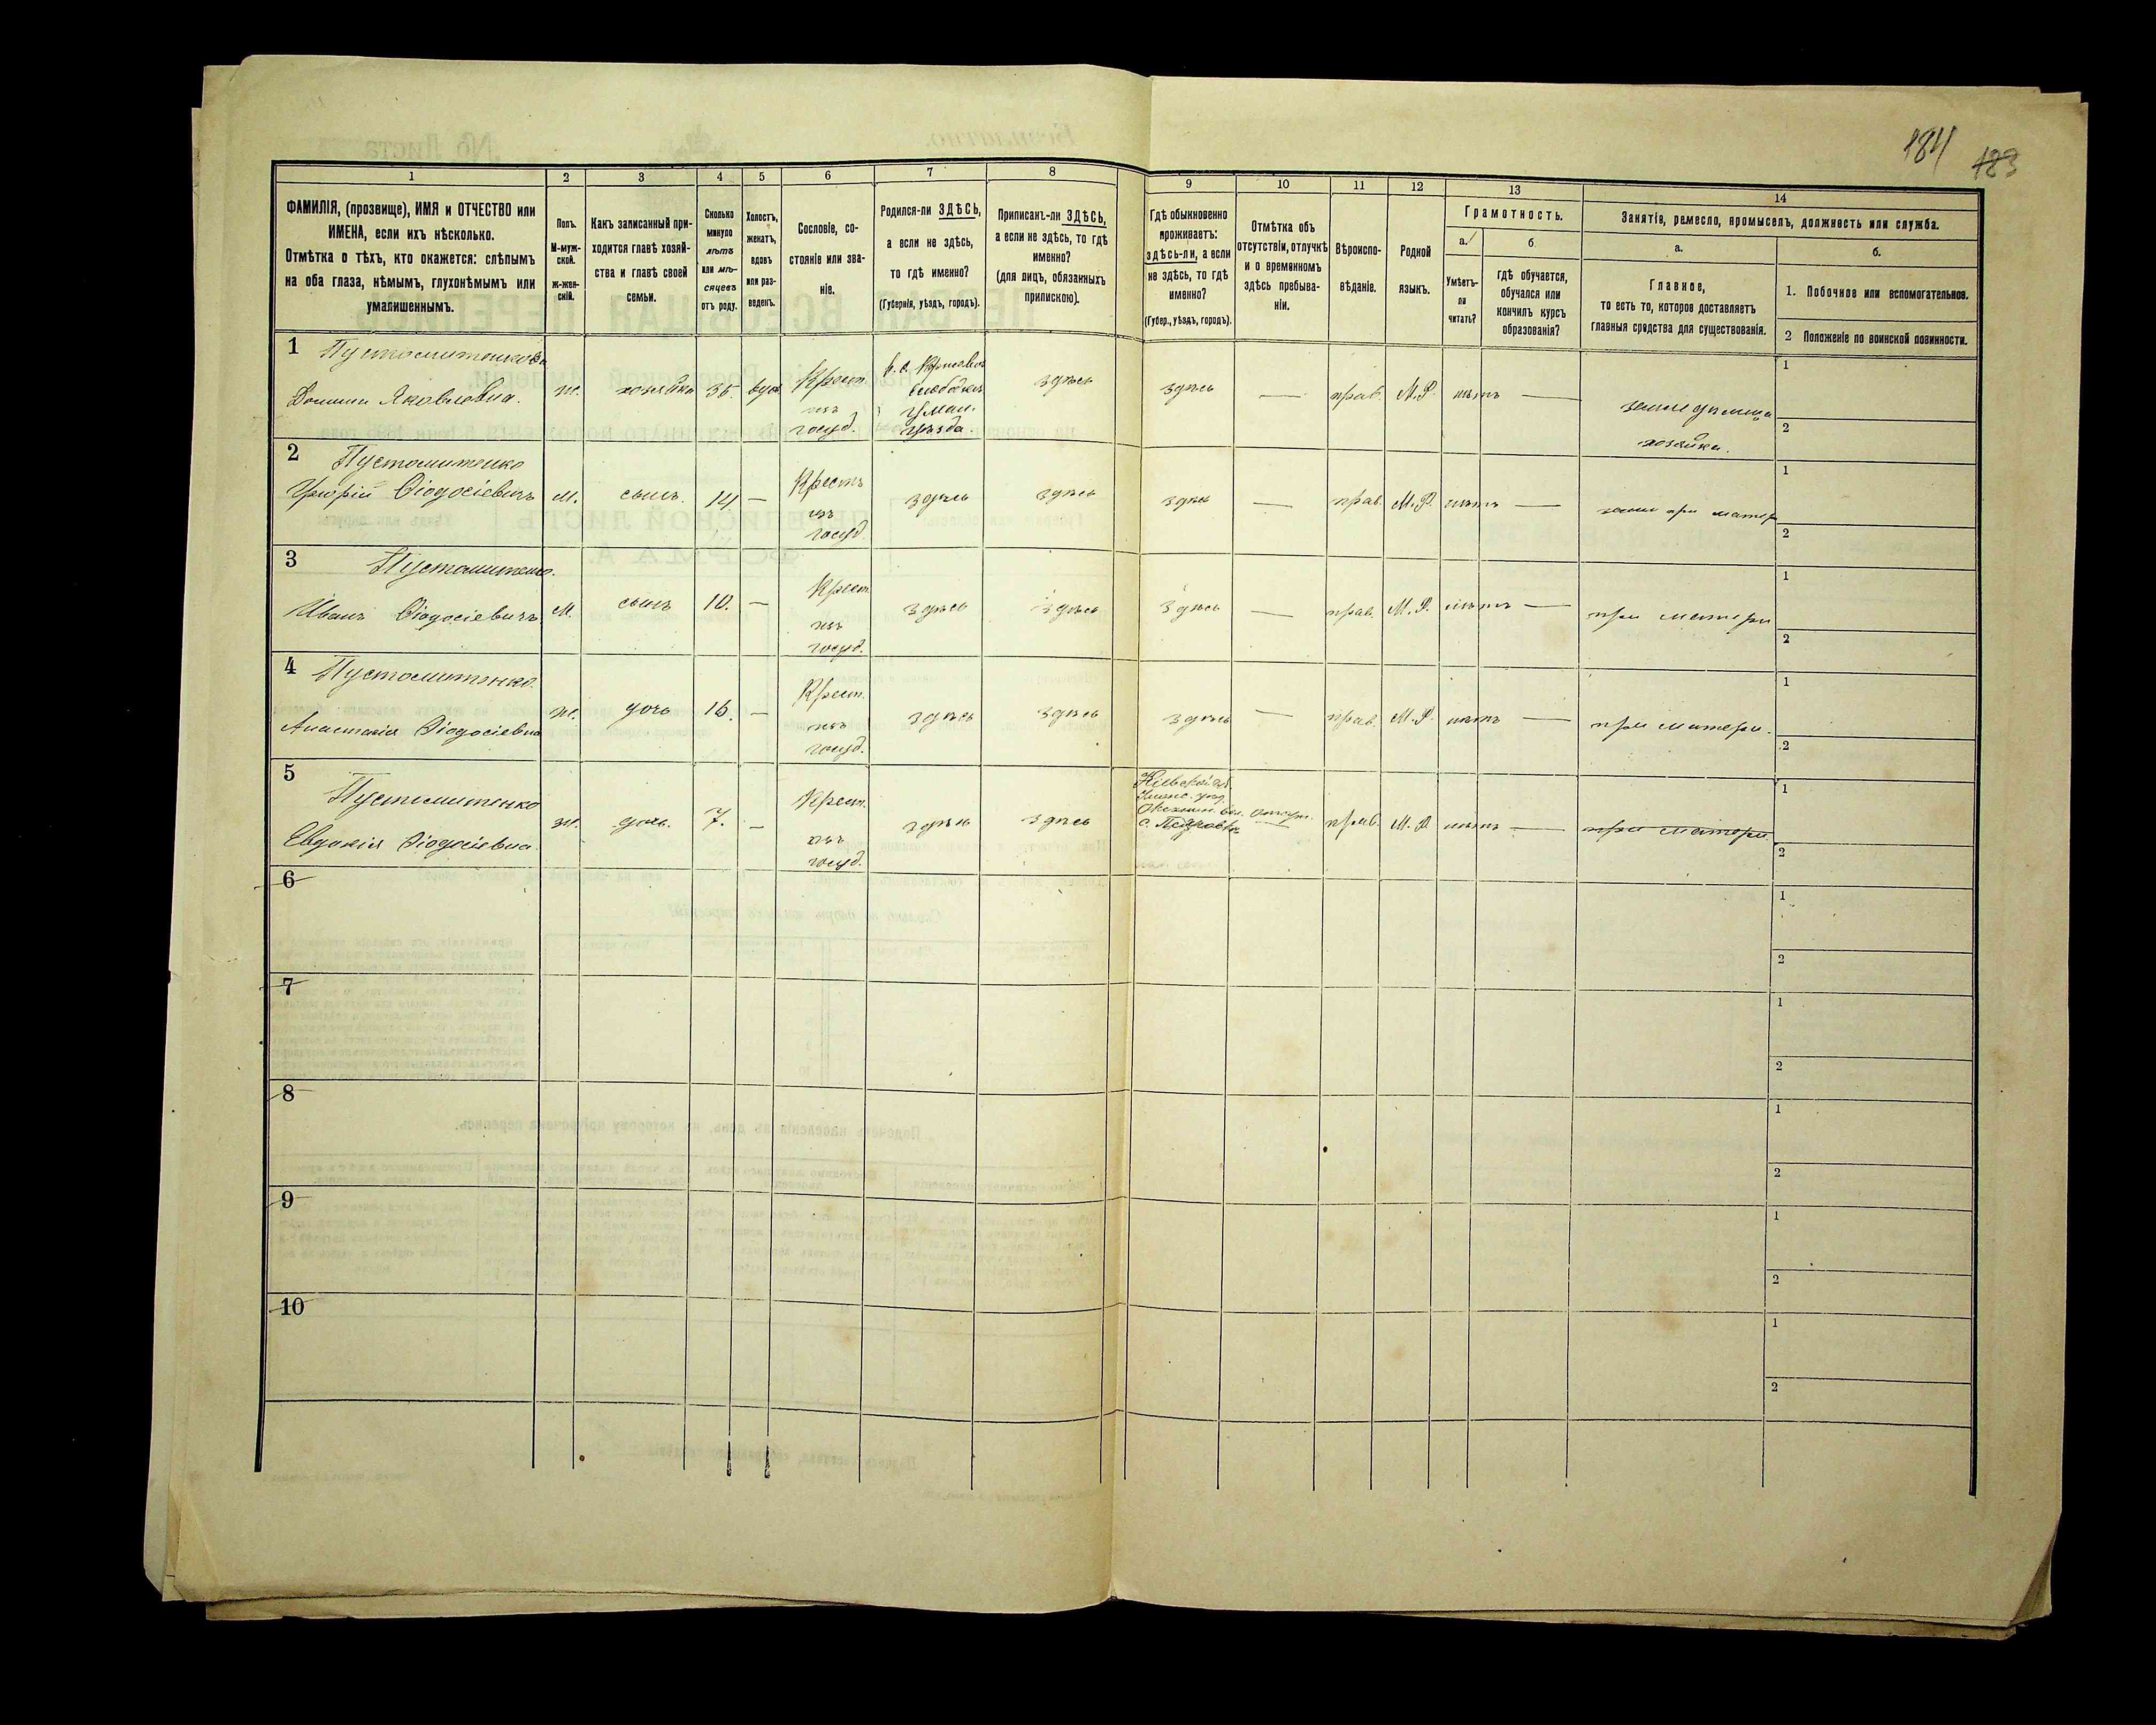 184 183
1 2 3 4 5 6 7 8 9 10 11 12 13 14
ФАМИЛІЯ, (прозвище), ИМЯ и ОТЧЕСТВО или
ИМЕНА, если ихъ нѣсколько.
Отмѣтка о тѣхъ, кто окажется: слѣпымъ
на оба глаза, нѣмымъ, глухонѣмымъ или
умалишеннымъ.
Полъ.
М-муж-
ской.
ж-жен-
скій.
Какъ записанный при-
ходится главѣ хозяй-
ства и главѣ своей
семьи.
Сколько
минуло
лѣтъ
или мѣ-
сяцевъ
отъ роду.
Холостъ,
женатъ,
вдовъ
или раз-
веденъ.
Сословіе, со-
стояніе или зва-
ніе.
Родился-ли ЗДѢСЬ,
а если не здѣсь,
то гдѣ именно?
(Губернія, уѣздъ, городъ).
Приписанъ-ли ЗДѢСЬ,
а если не здѣсь, то гдѣ
именно?
(для лицъ, обязанныхъ
припискою).
Гдѣ обыкновенно
проживаетъ:
здѣсь-ли, а если
не здѣсь, то гдѣ
именно?
(Губер., уѣздъ, городъ).
Отмѣтка объ
отсутствіи, отлучкѣ
и о временномъ
здѣсь пребыва-
ніи.
Вѣроиспо-
вѣданіе.
Родной
языкъ.
Грамотность.
а.
Умѣетъ-
ли
читать?
б.
гдѣ обучается,
обучался или
кончилъ курсъ
образованія?
Занятіе, ремесло, промыселъ, должность или служба.
а.
Главное,
то есть то, которое доставляетъ
главныя средства для существованія.
б.
1. Побочное или вспомогательное.
2 Положеніе по воинской повинности.
1
Яковлевна.
ж. хозяйка 35. вдов.
Крест.
изъ
госуд.
Уман.
уѣзда.
здѣсь здѣсь — прав. М.Р. нѣтъ —
хозяйка.
1
2
2 Пустомитенко
Григорій Ѳіодосіевичъ м. сынъ. 14 —
Крестъ
изъ
госуд
здѣсь здѣсь здѣсь — прав. М.Р. нѣтъ —
при матер
1
2
3 Пустомитенко.
Иванъ Ѳіодосіевичъ м. сынъ 10. —
Крест
изъ
госуд.
здѣсь здѣсь здѣсь — прав. М.Р. нѣтъ — при матери
1
2
4 Пустомитенко.
Анастасія Ѳіодосіевна ж. дочь 16. —
Крест.
изъ
госуд.
здѣсь здѣсь здѣсь — прав. М.Р. нѣтъ — при матери.
1
2
5 Пустомитенко
Евдокія Ѳіодосіевна. ж. дочь. 7. —
Крест.
изъ
госуд.
здѣсь здѣсь
Кіевской губ.
с. Петровка
отсут. прав. М.Р. нѣтъ — при матери.
1
2
6
1
2
7
1
2
8
1
2
9
1
2
10
1
2